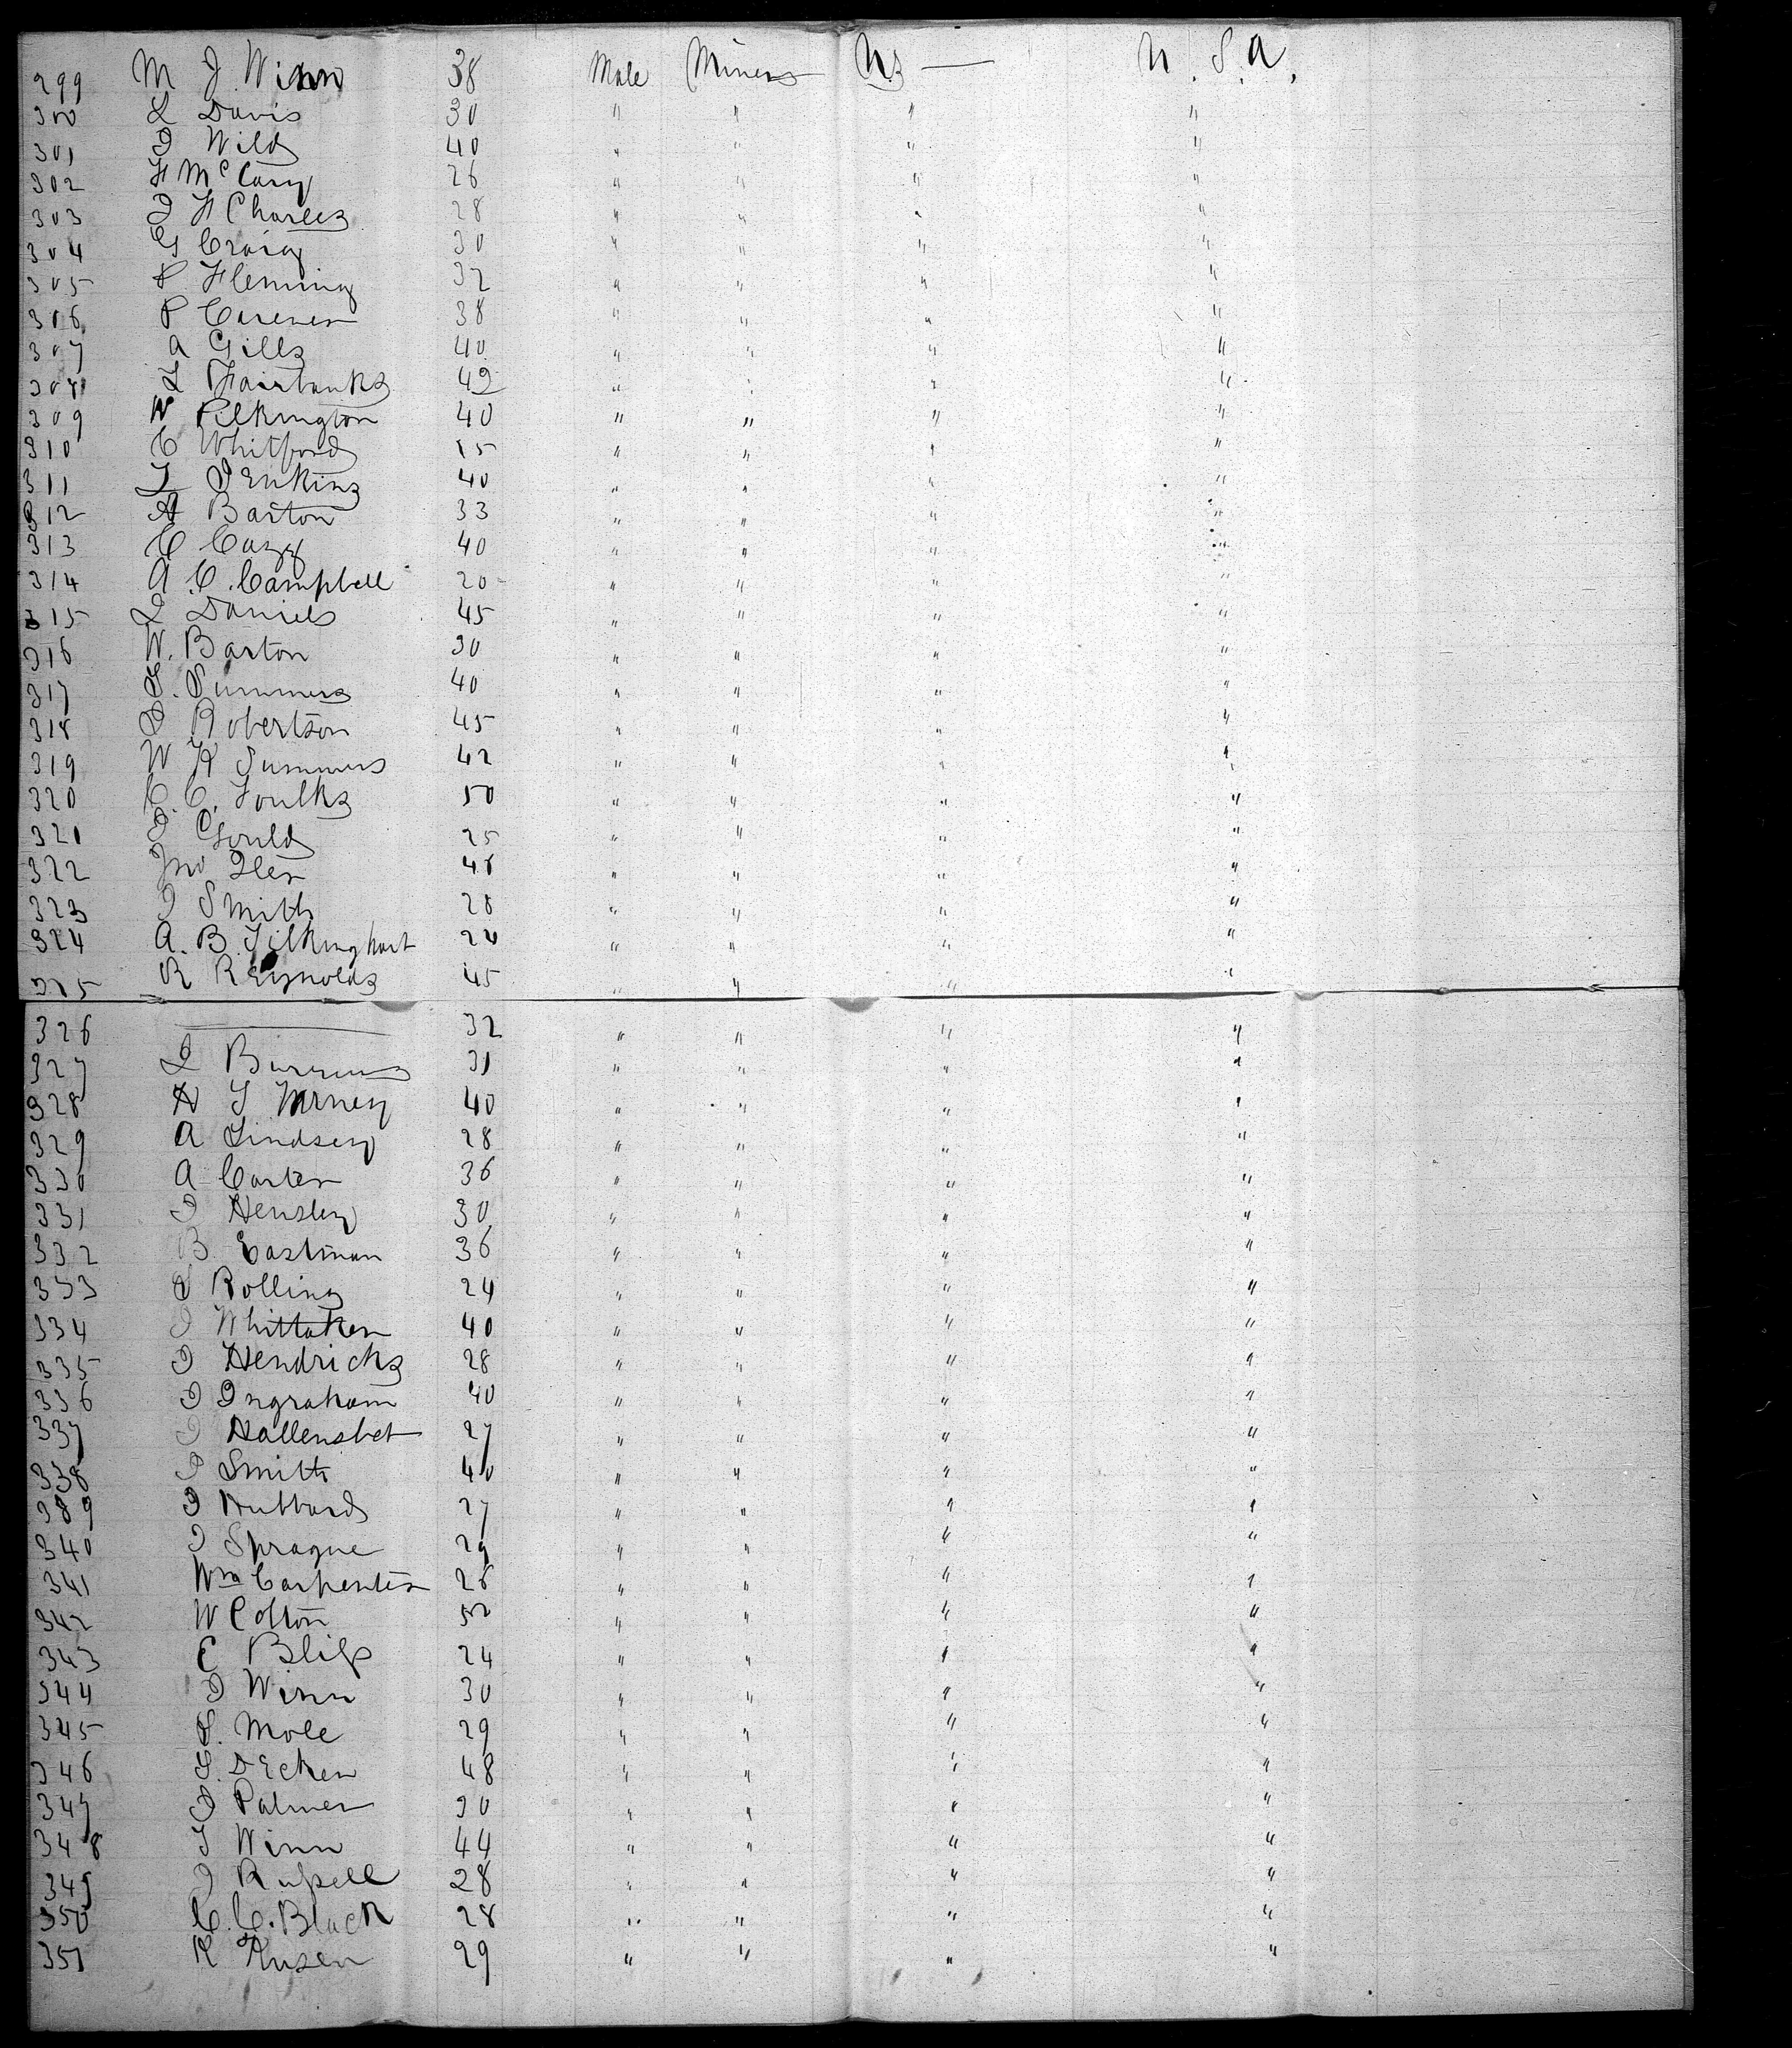 299 M J Winn 38 Male Miners U.S — U. S. A.
300 L Davis 30 " " " "
301 J Wild 40 " " " "
302 H McCary 26 " " " "
303 J H Charles 28 " " " "
304 G Craig 30 " " " "
305 P Fleming 32 " " " "
306 P 38 " " " "
307 A Gills 40 " " " "
308 L Fairbanks 49 " " " "
309 W Pilkington 40 " " " "
310 C Whitford 15 " " " "
311 T Jenkins 40 " " " "
312 A Barton 33 " " " "
313 C 40 " " " "
314 A. C. Campbell 20 " " " "
315 L Daniels 45 " " " "
316 W. Barton 30 " " " "
317 S. Summers 40 " " " "
318 S Robertson 45 " " " "
319 W H Summers 42 " " " "
320 C. C. Foulks 50 " " " "
321 J Gould 25 " " " "
322 Jno Iler 48 " " " "
323 J Smith 28 " " " "
324 A. B. 24 " " " "
325 R Reynolds 45 " " " "
326 ——— 32 " " " "
327 L Burrows 31 " " " "
328 H T 40 " " " "
329 A Lindsey 28 " " " "
330 A Carter 36 " " " "
331 J Hensley 30 " " " "
332 B Eastman 36 " " " "
333 J Rolling 24 " " " "
334 J Whittaker 40 " " " "
335 J Hendricks 28 " " " "
336 J Ingraham 40 " " " "
337 J Hallensbet 27 " " " "
338 J Smith 40 " " " "
339 J Hubbard 27 " " " "
340 J Sprague 29 " " " "
341 Wm Carpenter 26 " " " "
342 W Colton 52 " " " "
343 E Bliss 24 " " " "
344 J Winn 30 " " " "
345 S. Mole 29 " " " "
346 S. Decker 48 " " " "
347 J Palmer 30 " " " "
348 T Winn 44 " " " "
349 J Russell 28 " " " "
350 C. C. Black 28 " " " "
351 K 29 " " " "